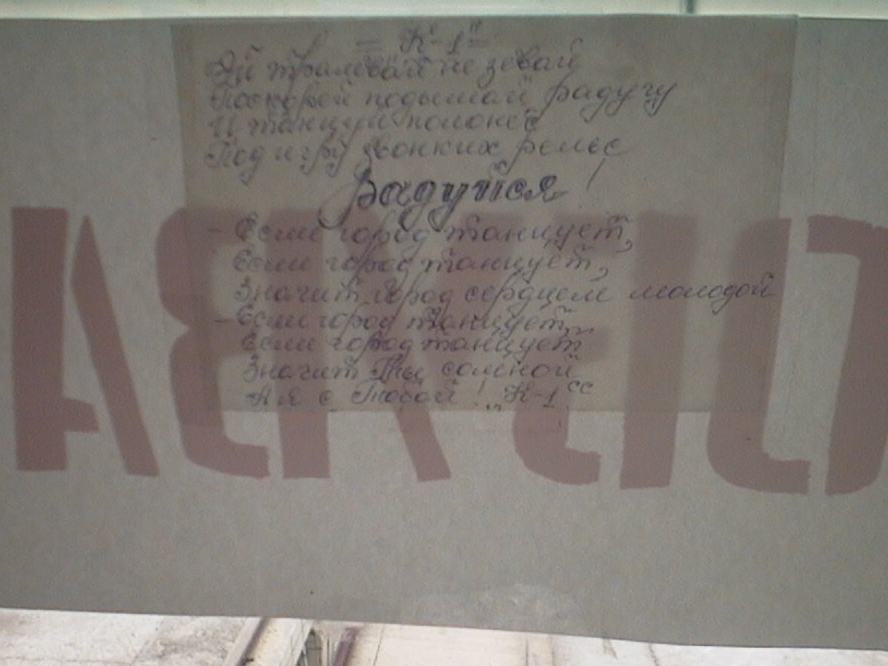 "К-1"
Эй трамвай не зевай
Поскорей подымай радугу
И танцуй полонез
Под игру звонких рельс
Радуйся!
- Если город танцует,
Если город танцует,
Значит город сердцем молодой
- Если город танцует,
Если город танцует
Значит Ты со мной
А я с Тобой! "К-1"